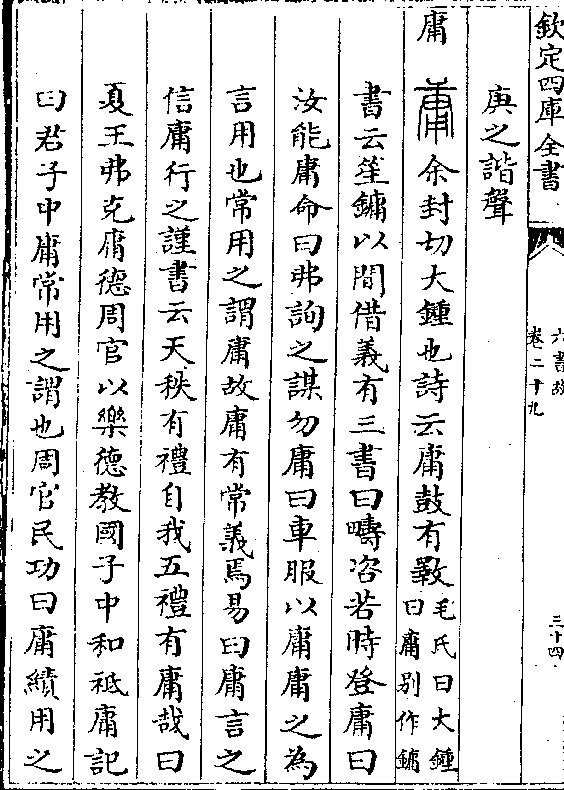 欽定四庫全書
六書故
卷二十九
三十四
庚之諧聲
庸 余封切大鍾也詩云庸鼓有斁毛氏曰大鍾
曰庸别作鏞
書云笙鏞以間借義有三書曰疇咨若時登庸曰
汝能庸命曰弗詢之謀勿庸曰車服以庸庸之為
言用也常用之謂庸故庸有常義焉易曰庸言之
信庸行之謹書云天秩有禮自我五禮有庸哉曰
夏王弗克庸德周官以樂德教國子中和祗庸記
曰君子中庸常用之謂也周官民功曰庸績用之